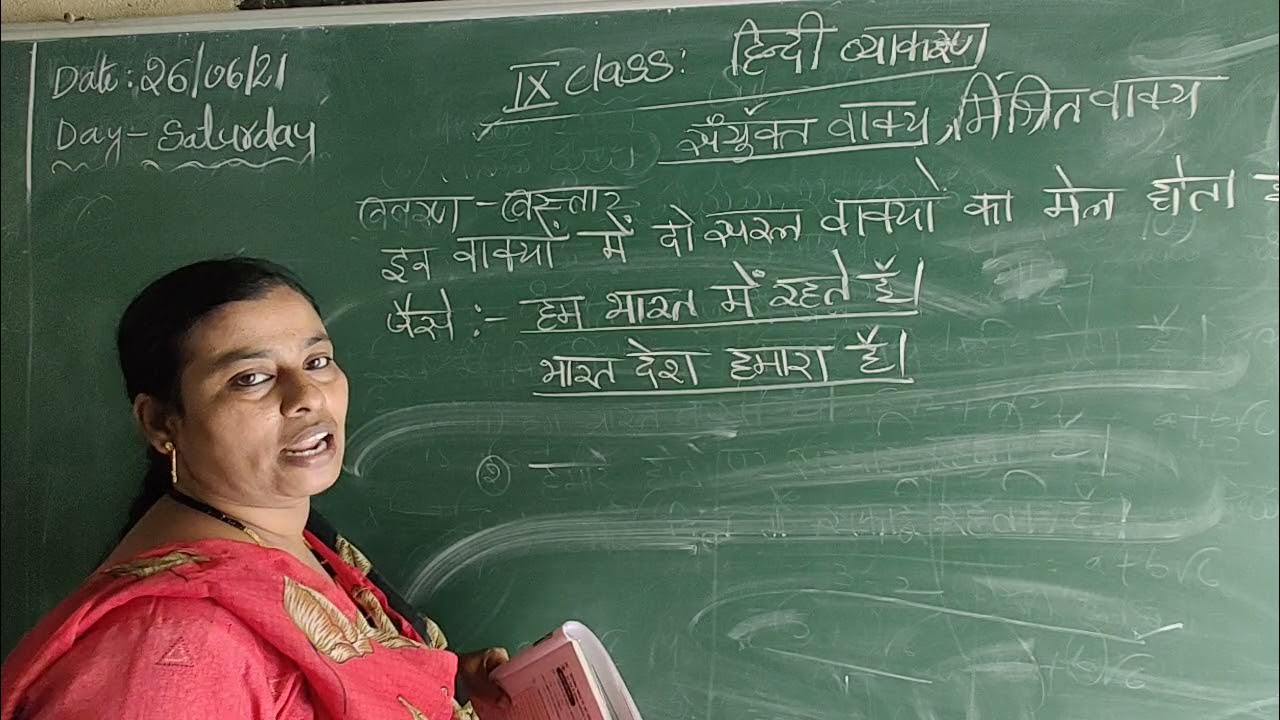 Date: 26/06/21
Day- Saturday
IX Class: हिन्दी व्याकरण
संयुक्त वाक्य, मिश्रित वाक्य
विवरण - विस्तार
इन वाक्यों में दो सरल वाक्यों का मेल होता
जैसे :- हम भारत में रहते हैं।
भारत देश हमारा है।